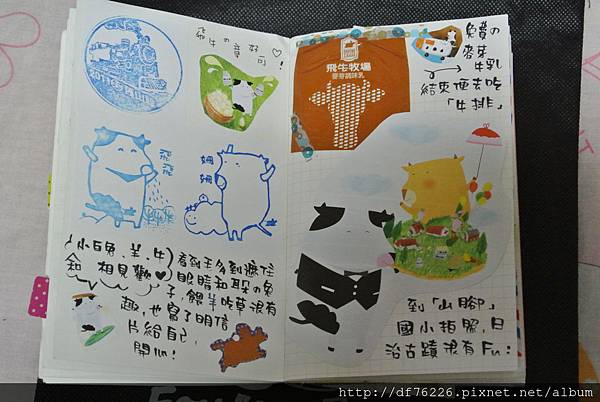 飛牛の章好
可！
飛飛
姍姍
(小白兔、羊、牛)
和 相見歡♡
看到毛多到遮住
眼睛和耳朵の兔
子,餵羊吃草很有
趣,也寫了明信
片給自己,
開心!
飛牛牧場
麥芽調味乳
免費の
麥芽
牛乳
結束便去吃
「牛排」
到「山腳」
國小拍照,日
治古蹟很有Fu!
http://df76226.pixnet.net/album